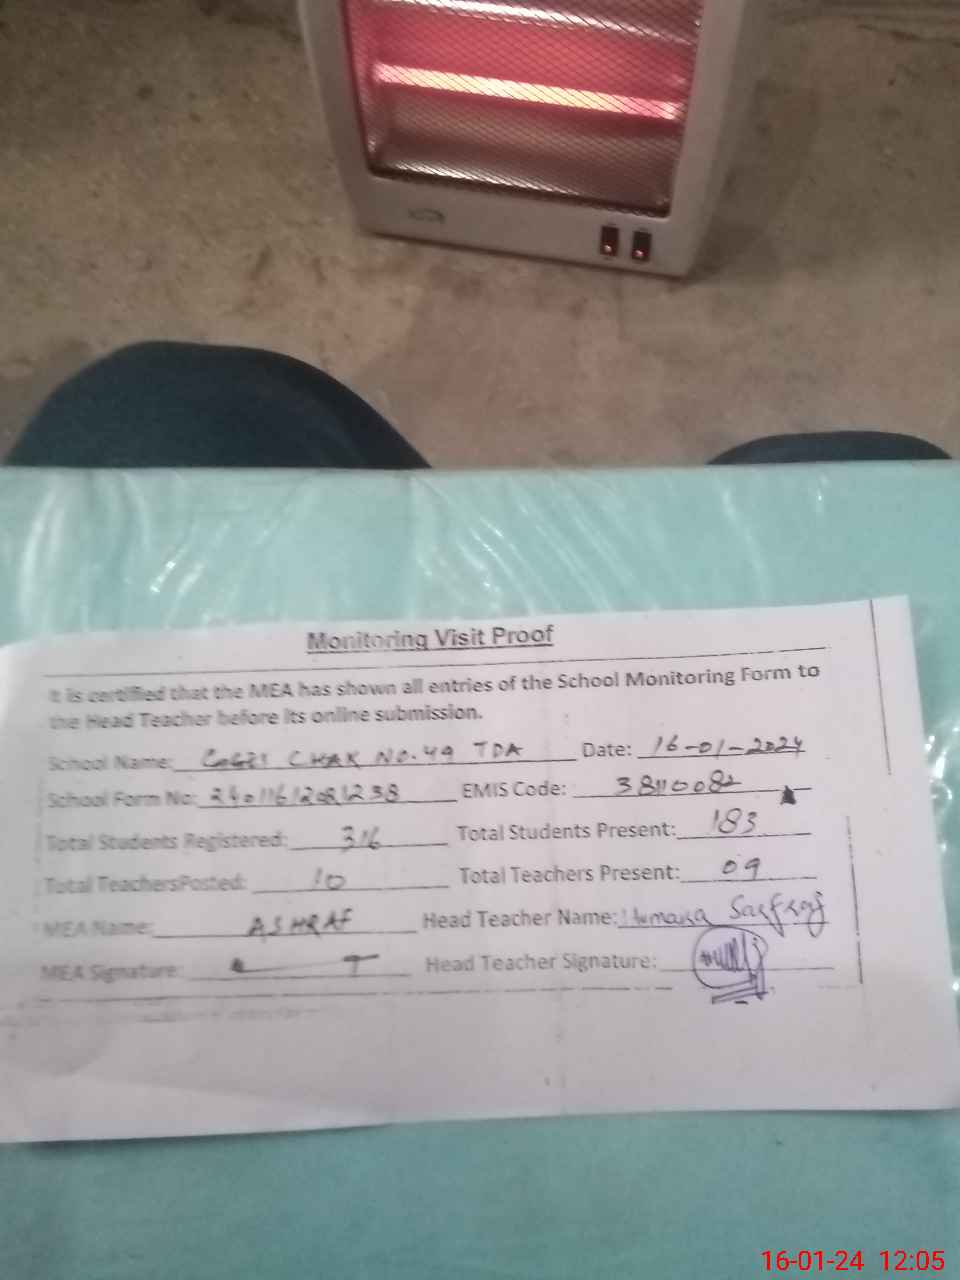 Monitoring Visit Proof
It is certified that the MEA has shown all entries of the School Monitoring Form to
the Head Teacher before its online submission.
School Name: CHAK NO. 49 TDA Date: 16-01-2024
School Form No: EMIS Code: 38110082
Total Students Registered: 316 Total Students Present: 183
Total TeachersPosted: 10 Total Teachers Present: 09
MEA Name: ASHRAF Head Teacher Name: Humaira Sarfraj
MEA Signature: Head Teacher Signature:
16-01-24 12:05